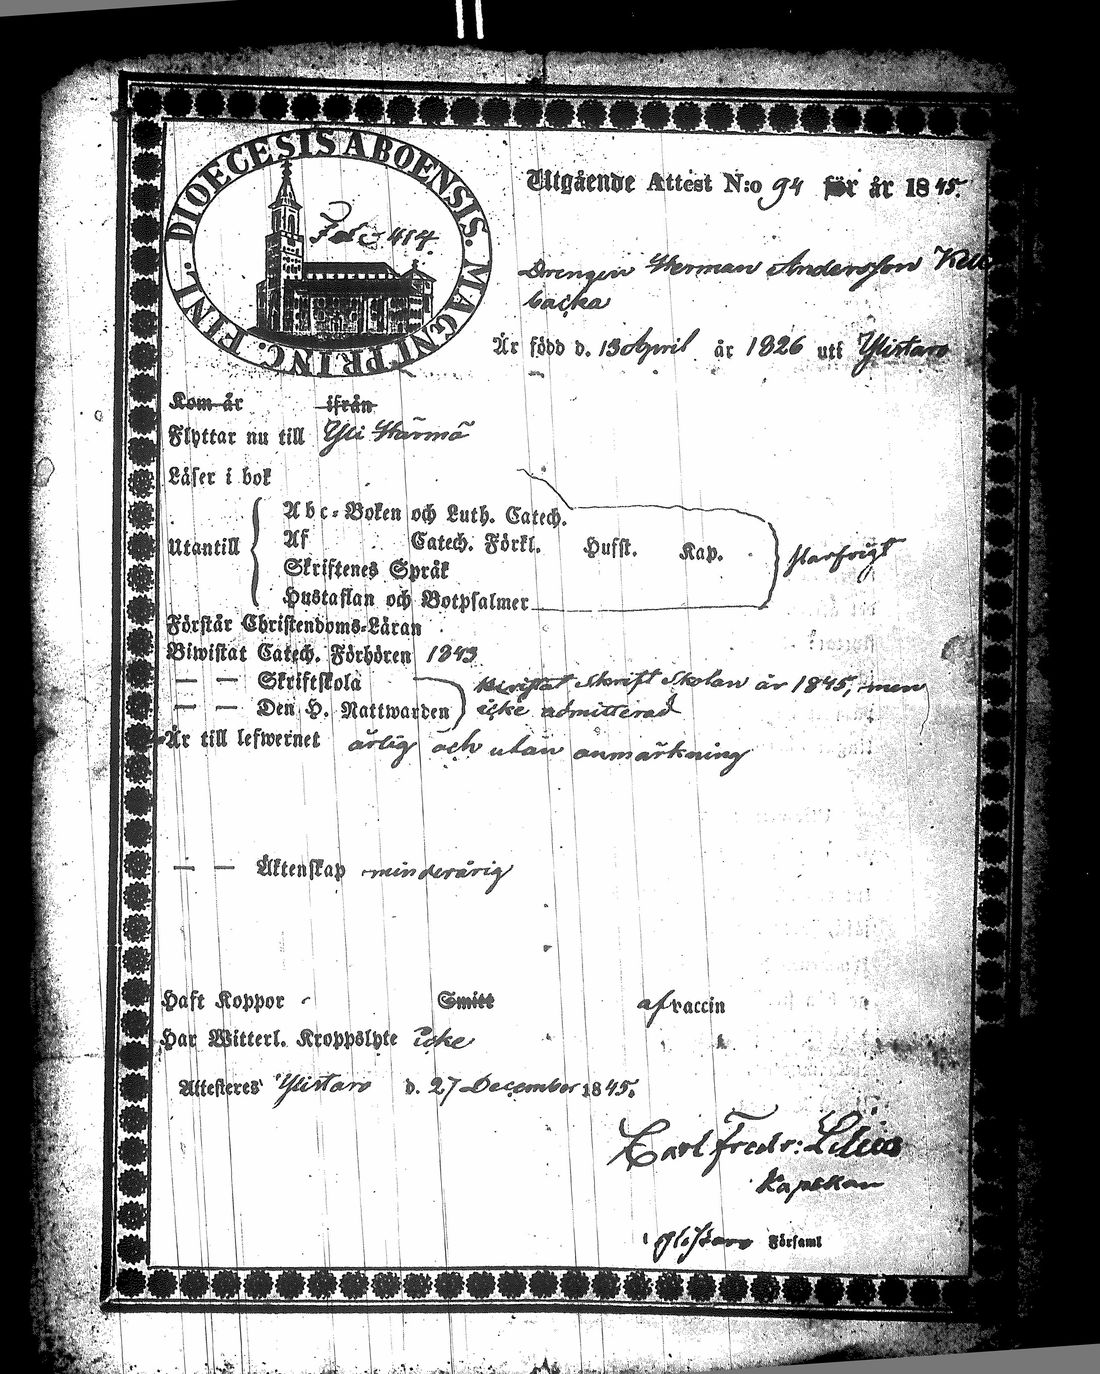 DIOECESIS ABOENSIS. MAGNI PRINC. FINL.
Fol 414.
Utgående Attest N:o 94 för år 1845.
Drengen Herman Andersson
backa
Är född d. 13 April år 1826 uti Ylistaro
Kom år ifrån
Flyttar nu till Yli Härmä
Läser i bok
Abc-Boken och Luth. Catech.
Utantill Af Catech. Förkl. Husft. Kap.
Skriftenes Språk
Hustaflan och Botpsalmer
Förstår Christendoms-Läran
Biwistat Catech. Förhören 1843
— — Skriftskola bevistat Skrift Skolan år 1845, men
— — Den H. Nattwarden icke admitterad
Är till lefwernet ärlig och utan anmärkning
— — Äktenskap minderårig
Haft Koppor Smitt af vaccin
Har Witterl. Kroppslyte icke
Attesteres Ylistaro d. 27 December 1845.
Carl Fredr: Lilius
Kapellan
i Ylistaro Församl